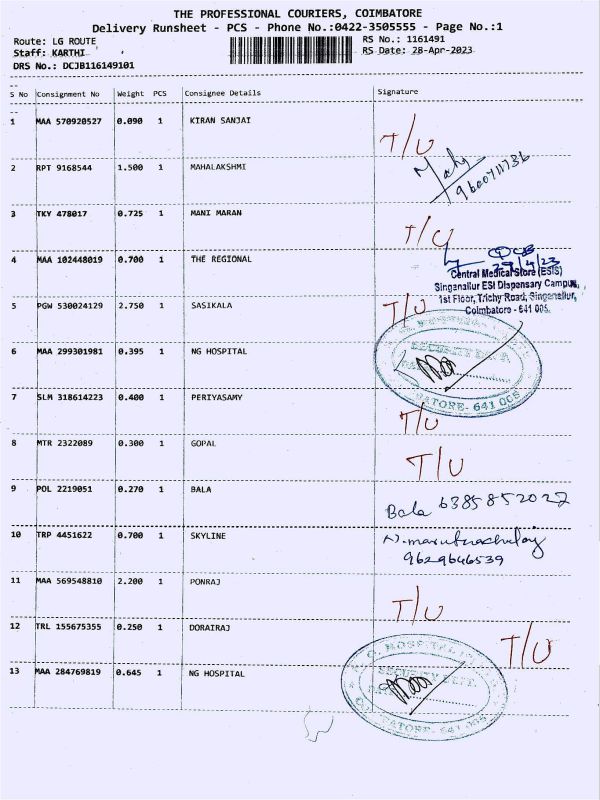 THE PROFESSIONAL COURIERS, COIMBATORE
Delivery Runsheet - PCS - Phone No.:0422-3505555 - Page No.:1
Route: LG ROUTE RS No.: 1161491
Staff: KARTHI RS Date: 28-Apr-2023
DRS No.: DCJB116149101
S No Consignment No Weight PCS Consignee Details Signature
1 MAA 570920527 0.090 1 KIRAN SANJAI T/U
2 RPT 9168544 1.500 1 MAHALAKSHMI
3 TKY 478017 0.725 1 MANI MARAN T/U
4 MAA 102448019 0.700 1 THE REGIONAL
29/4/23
Central Medical Store (ESIS)
Singanallur ESI Dispensary Campus,
1st Floor, Trichy Road, Singanallur,
Coimbatore - 641 005.
5 PGW 530024129 2.750 1 SASIKALA T/U
6 MAA 299301981 0.395 1 NG HOSPITAL
SECURITY
641 005
7 SLM 318614223 0.400 1 PERIYASAMY T/U
8 MTR 2322089 0.300 1 GOPAL T/U
9 POL 2219051 0.270 1 BALA Bala 6385852027
10 TRP 4451622 0.700 1 SKYLINE
9629646539
11 MAA 569548810 2.200 1 PONRAJ T/U
12 TRL 155675355 0.250 1 DORAIRAJ T/U
13 MAA 284769819 0.645 1 NG HOSPITAL
HOSPITAL
SECURITY DEPT.
641 005